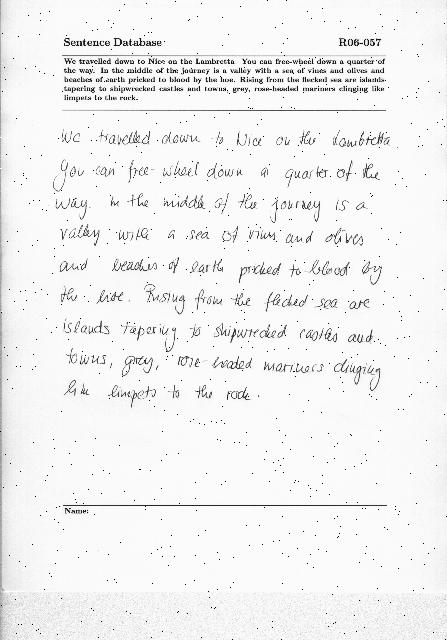 Sentence Database R06-057
We travelled down to Nice on the Lambretta. You can free-wheel down a quarter of
the way. In the middle of the journey is a valley with a sea of vines and olives and
beaches of earth pricked to blood by the hoe. Rising from the flecked sea are islands
tapering to shipwrecked castles and towns, grey, rose-headed mariners clinging like
limpets to the rock.
We travelled down to Nice on the Lambretta
You can free-wheel down a quarter of the
way. In the middle of the journey is a
valley with a sea of vines and olives
and beaches of earth pricked to blood by
the hoe. Rising from the flecked sea are
islands tapering to shipwrecked castles and
towns, grey, rose-headed mariners clinging
like limpets to the rock.
Name: